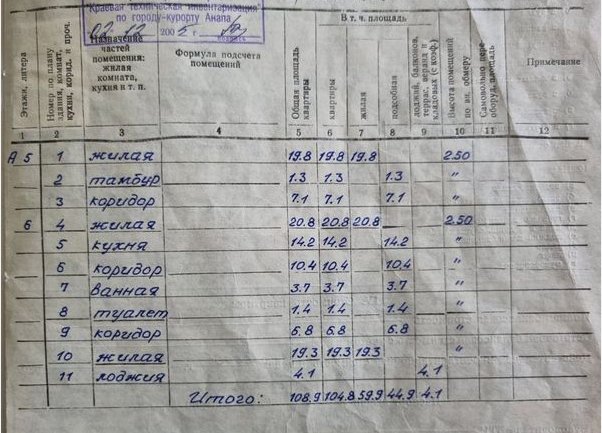 "Краевая техническая инвентаризация"
по городу-курорту Анапа
02 12 2005 г.
Этажи, литера
Номер по плану здания, комнат, кухни, корид. и проч.
Назначение частей помещения: жилая комната, кухня и т. п.
Формула подсчета помещений
Общая площадь квартиры
В т. ч. площадь
квартиры
жилая
подсобная
лоджий, балконов, террас, веранд и кладовых (с коэф.)
Высота помещений по вн. обмеру
Самовольно пере- оборуд. площадь
Примечание
1 2 3 4 5 6 7 8 9 10 11 12
А 5 1 жилая 19.8 19.8 19.8 2.50
2 тамбур 1.3 1.3 1.3 "
3 коридор 7.1 7.1 7.1 "
6 4 жилая 20.8 20.8 20.8 2.50
5 кухня 14.2 14.2 14.2 "
6 коридор 10.4 10.4 10.4 "
7 ванная 3.7 3.7 3.7 "
8 туалет 1.4 1.4 1.4 "
9 коридор 6.8 6.8 6.8 "
10 жилая 19.3 19.3 19.3 "
11 лоджия 4.1 4.1
Итого: 108.9 104.8 59.9 44.9 4.1